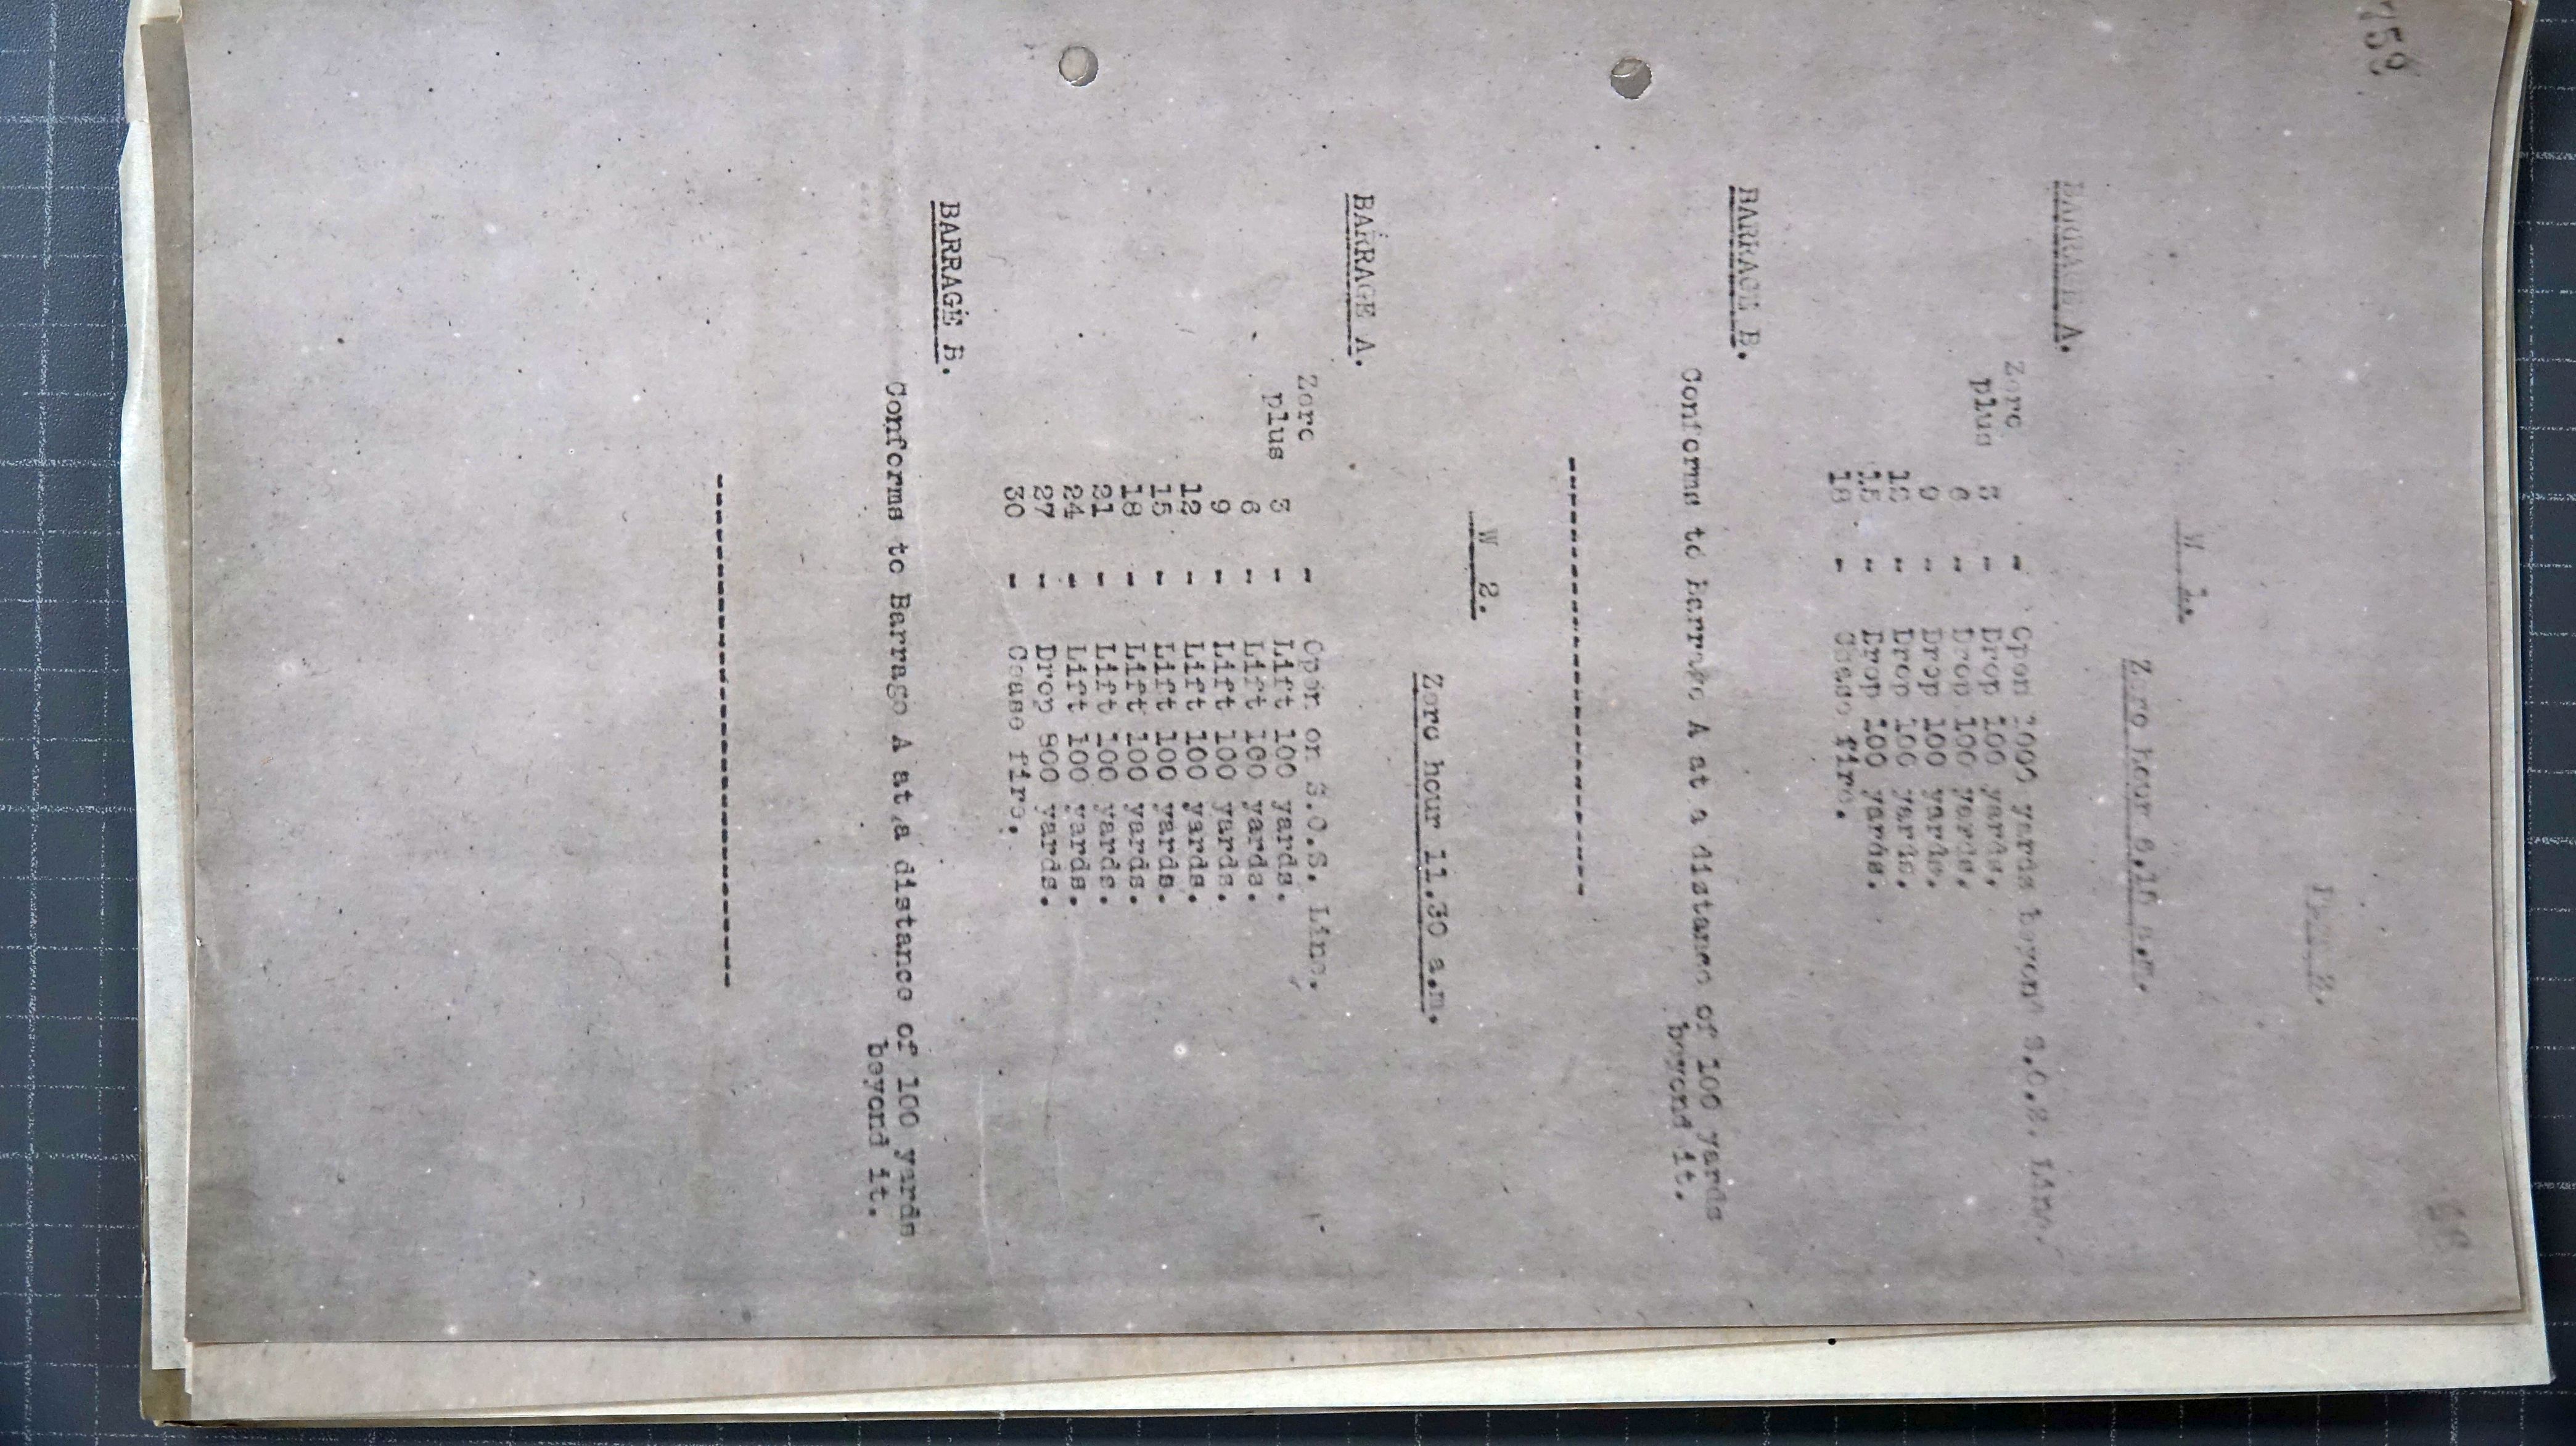 759
W 1.
Zero hour 6.10 a.m.
BARRAGE A.
Zero - Open 1000 yards beyond S.O.S. Line.
plus 3 - Drop 100 yards.
6 - Drop 100 yards.
9 - Drop 100 yards.
12 - Drop 100 yards.
15 - Drop 100 yards.
18 - Cease fire.
BARRAGE B.
Conforms to Barrage A at a distance of 100 yards
beyond it.
W 2.
Zero hour 11.30 a.m.
BARRAGE A.
Zero - Open on S.O.S. Line.
plus 3 - Lift 100 yards.
6 - Lift 100 yards.
9 - Lift 100 yards.
12 - Lift 100 yards.
15 - Lift 100 yards.
18 - Lift 100 yards.
21 - Lift 100 yards.
24 - Lift 100 yards.
27 - Drop 800 yards.
30 - Cease fire.
BARRAGE B.
Conforms to Barrage A at a distance of 100 yards
beyond it.